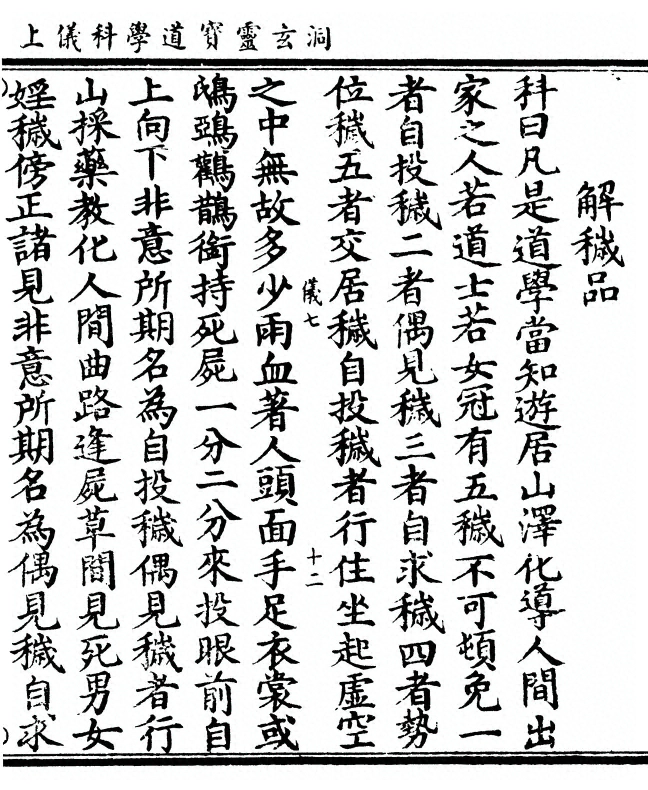 洞玄靈寶道學科儀上
解穢品
科曰凡是道學當知遊居山澤化導人間出
家之人若道士若女冠有五穢不可頓免一
者自投穢二者偶見穢三者自求穢四者勢
位穢五者交居穢自投穢者行住坐起虛空
儀七
十二
之中無故多少雨血著人頭面手足衣裳或
鴟鵶鸛鵲銜持死屍一分二分來投眼前自
上向下非意所期名為自投穢偶見穢者行
山採藥教化人間曲路逢屍草間見死男女
婬穢傍正諸見非意所期名為偶見穢自求